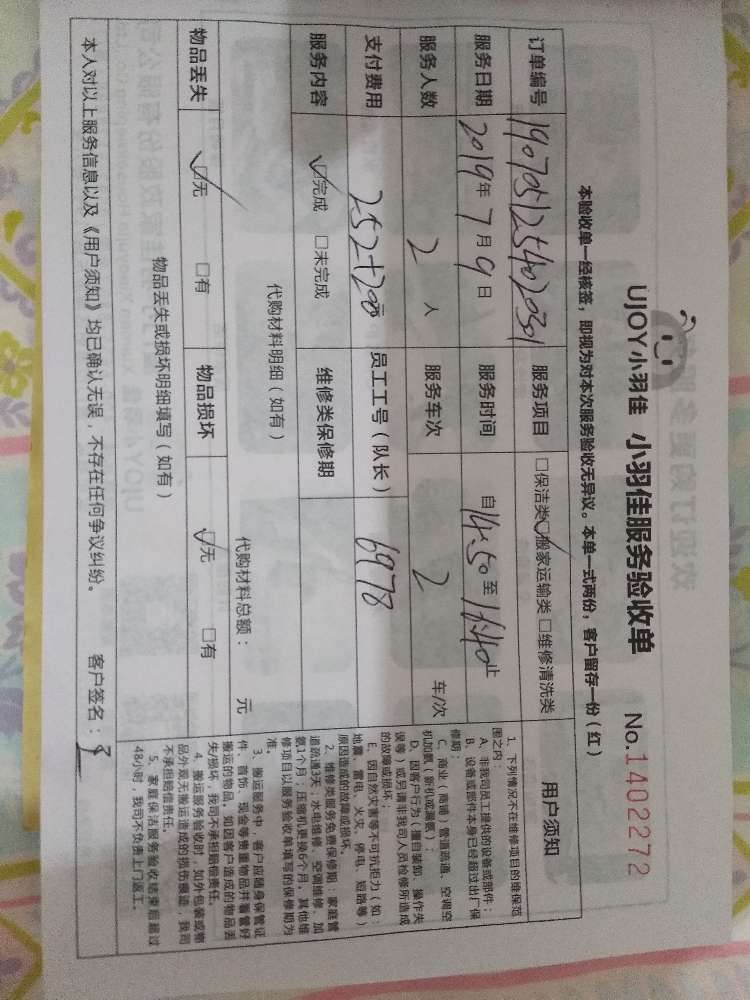 UJOY小羽佳 小羽佳服务验收单 No.1402272
本验收单一经核签，即视为对本次服务验收无异议。本单一式两份，客户留存一份（红）
订单编号 服务项目 □保洁类☑搬家运输类□维修清洗类
服务日期 2019年7月9日 服务时间 自14:50至16:40止
服务人数 2人 服务车次 2 车/次
支付费用 252+200元 员工工号（队长） 6978
服务内容 ☑完成 □未完成 维修类保修期
代购材料明细（如有） 代购材料总额： 元
物品丢失 ☑无 □有 物品损坏 ☑无 □有
物品丢失或损坏明细填写（如有）
本人对以上服务信息以及《用户须知》均已确认无误，不存在任何争议纠纷。 客户签名：
用户须知
1、下列情况不在维修项目的维保范
围之内：
A、非我司员工提供的设备或部件；
B、设备或部件本身已经超过出厂保
修期；
C、商业（商铺）管道疏通、空调空
机加氨（新机或漏氨）；
D、因客户行为（擅自装卸、操作失
误等）或另请非我司人员检修所造成
的故障或损坏；
E、因自然灾害等不可抗拒力（如：
地震、雷电、火灾、停电、短路等）
原因造成的故障或损坏。
2、维修类服务免费保修期：家庭管
道疏通3天，水电维修、空调维修、加
氨1个月；压缩机更换6个月，其他维
修项目以服务验收单填写的保修期为
准。
3、搬运服务中，客户应随身保管证
件、首饰、现金等贵重物品并看管好
搬运的物品，如因客户造成的物品丢
失/损坏，我司不承担赔偿责任。
4、搬运服务验收时，如外包装或物
品外观无搬运造成的损伤痕迹，我司
不承担赔偿责任。
5、家庭保洁服务验收结束后超过
48小时，我司不负责上门返工。